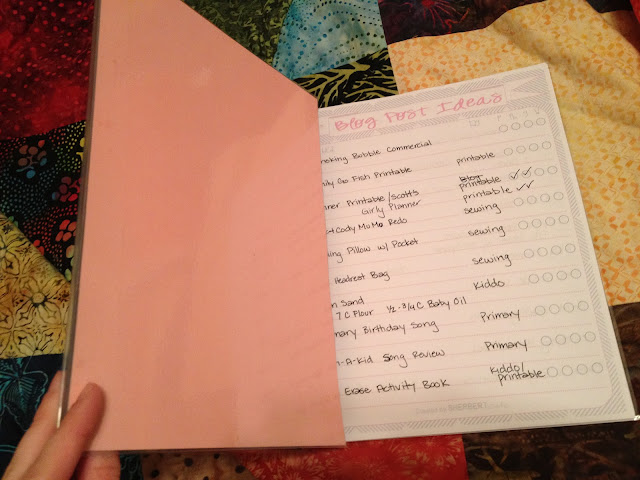 Blog Post Ideas
oking Bubble Commercial
ily Go Fish Printable printable
ner Printable/Scott's printable
Girly Planner printable
Cody MuMu Redo sewing
ing Pillow w/ Pocket sewing
Headrest Bag sewing
n Sand Kiddo
7 C Flour 1/2-3/4 C Baby Oil
mary Birthday Song Primary
-A-Kid Song Review Primary
Erase Activity Book Kiddo/
printable
Created by